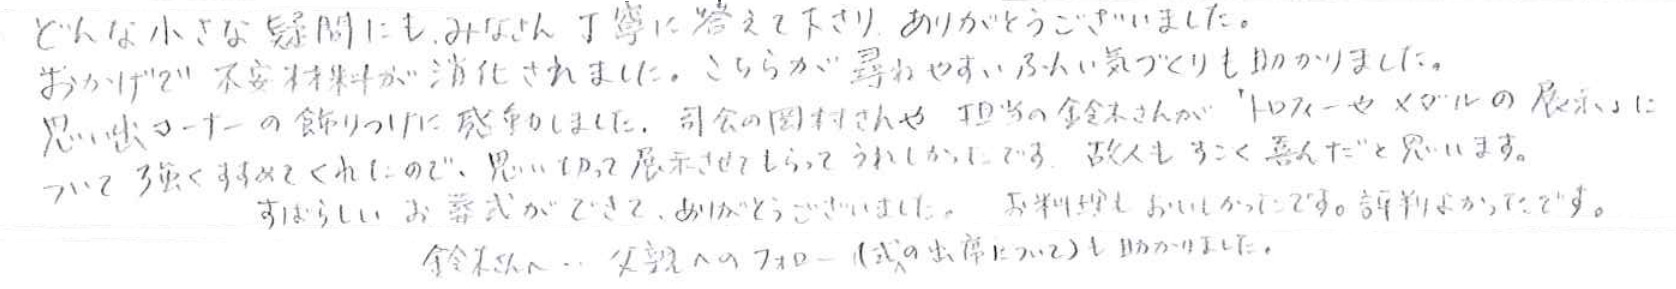 どんな小さな疑問にも、みなさん丁寧に答えて下さり、ありがとうございました。
おかげで不安材料が消化されました。こちらが尋ねやすいふんい気づくりも助かりました。
思い出コーナーの飾りつけに感動しました。司会の岡村さんや担当の鈴木さんが「トロフィーやメダルの展示」に
ついて強くすすめてくれたので、思い切って展示させてもらってうれしかったです。故人もすごく喜んだと思います。
すばらしいお葬式ができて、ありがとうございました。お料理もおいしかったです。評判よかったです。
鈴木さんへ… 父親へのフォロー(式への出席について)も助かりました。